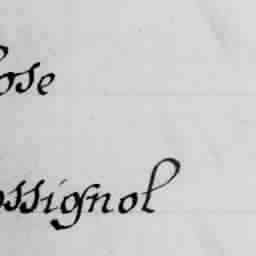 ose
ossignol